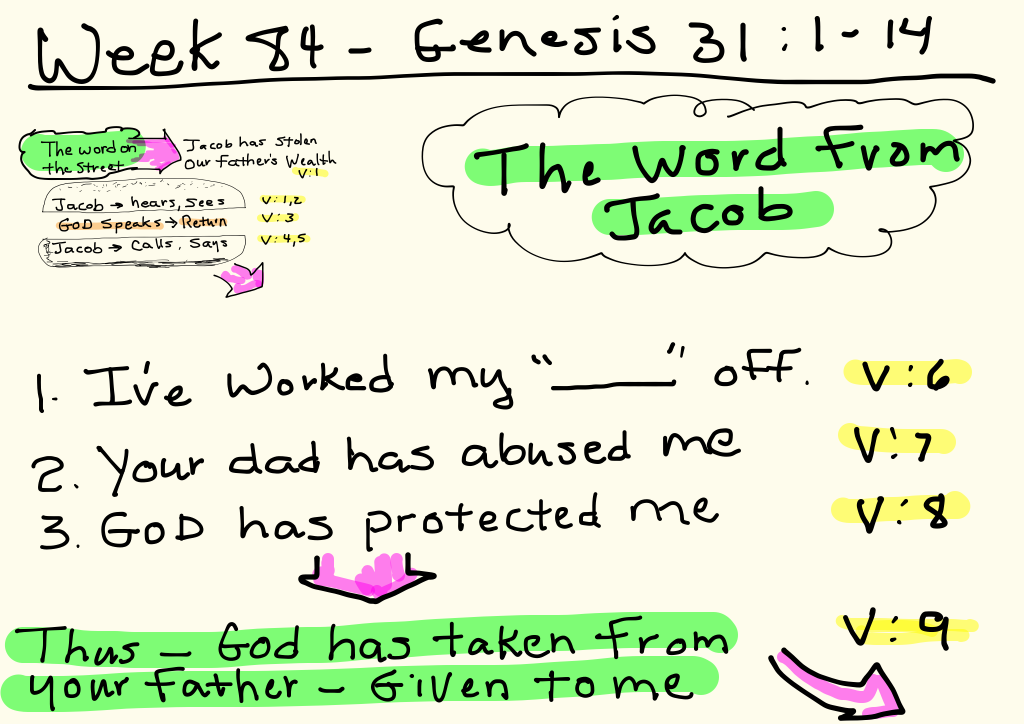 Week 84 - Genesis 31:1-14
The word on
the Street
Jacob has Stolen
Our Father's Wealth
V:1
Jacob → hears, sees V:1,2
GOD Speaks → Return V:3
Jacob → Calls, Says V:4,5
The Word From
Jacob
1. I've worked my "____" off. V:6
2. Your dad has abused me V:7
3. GOD has protected me V:8
Thus - God has taken From V:9
your Father - Given to me